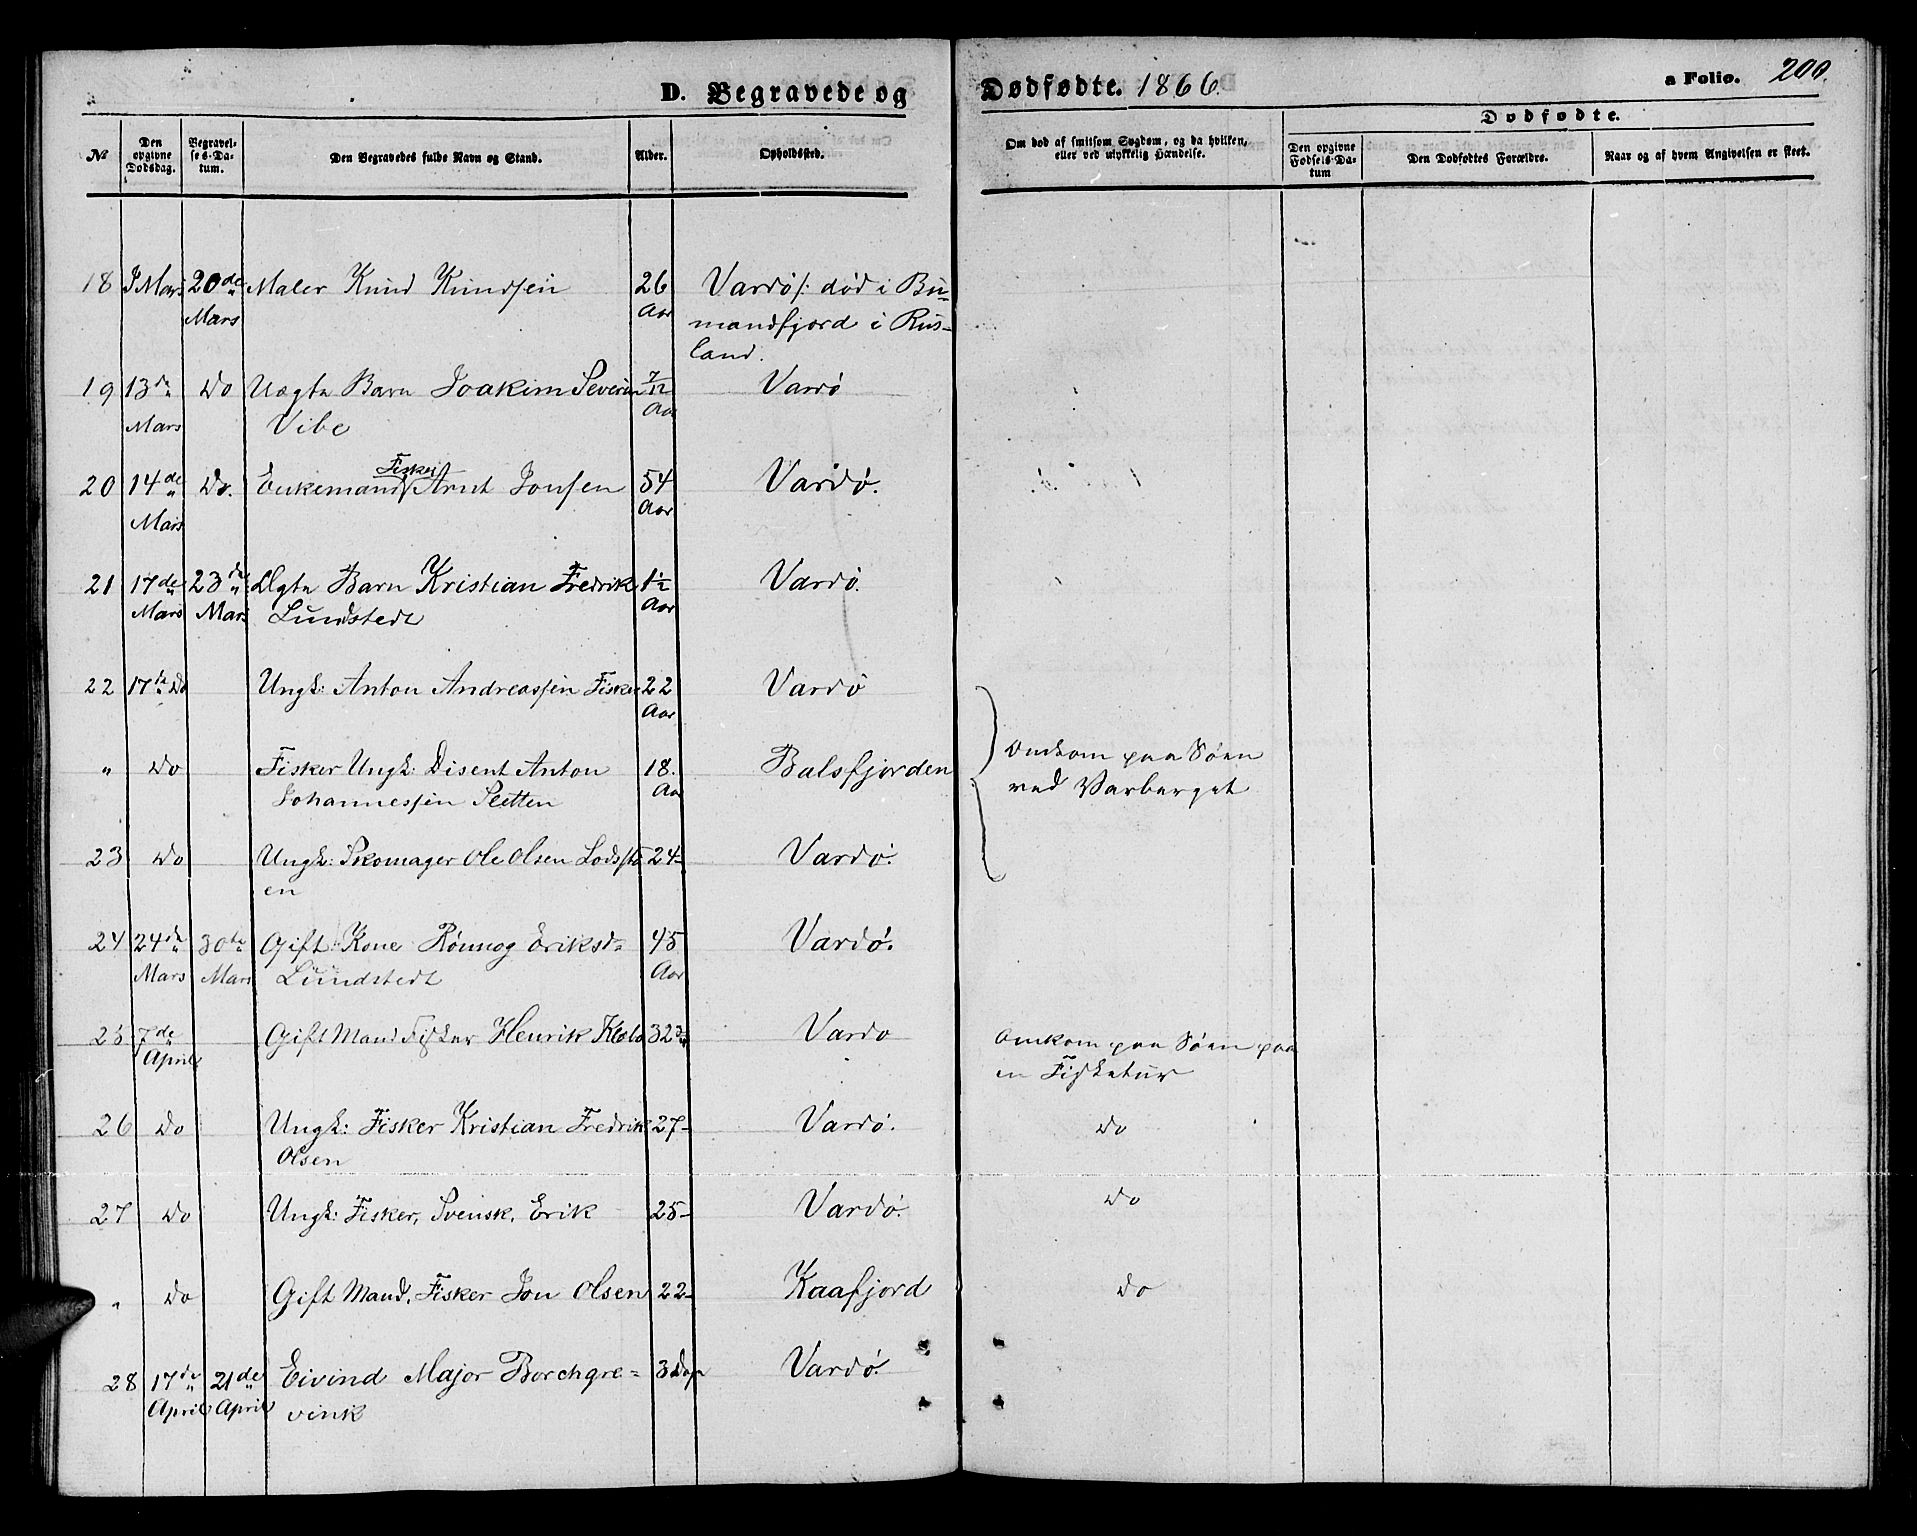 D. Begravede og
Dødfødte. 1866.
a Folio. 200.
No
Den opgivne Dødsdag.
Begravelses-Datum.
Den Begravedes fulde Navn og Stand.
Alder.
Opholdssted.
Om død af smitsom Sygdom, og da hvilken,
eller ved ulykkelig Hændelse.
Dødfødte.
Den opgivne Fødsels-Datum
Den Dødfødtes Forældre.
Naar og af hvem Angivelsen er skeet.
18 Mars 20de Maler Knud Knudsen 26 Vardø /: død i Bu-
Mars Aar mandfjord i Rus-
land.
19 13de Do Uægte Barn Joakim Severin 7/12 Vardø
Mars Vibe Aar
20 14de Do. Enkemand Fisker Arnt Jonsen 54 Vardø.
Mars Aar
21 17de 23de Ægte Barn Kristian Fredrik 1½ Vardø.
Mars Mars Lundstedt Aar
22 17de Do Ungk: Anton Andreassen Fisker 22 Vardø
Aar
" Do Fisker Ungk: Disent Anton 18. Balsfjorden Omkom paa Søen
Johannessen Aar ved Varberget
23 Do Ungk: Skomager Ole Olsen 24- Vardø.
en
24 24de 30te Gift Kone Rønnog Eriksd= 45 Vardø.
Mars Mars Lundstedt Aar
25 7de Gift Mand Fisker Henrik 32 Vardø Omkom paa Søen paa
April en Fisketur
26 Do Ungk: Fisker Kristian Fredrik 27- Vardø. Do
Olsen
27 Do Ungk: Fisker, Svensk, Erik 25- Vardø. Do
" Do Gift Mand, Fisker Jon Olsen 22- Kaafjord Do
28 17de 21de Eivind Major Borchgre= 3 Vardø.
April April vink